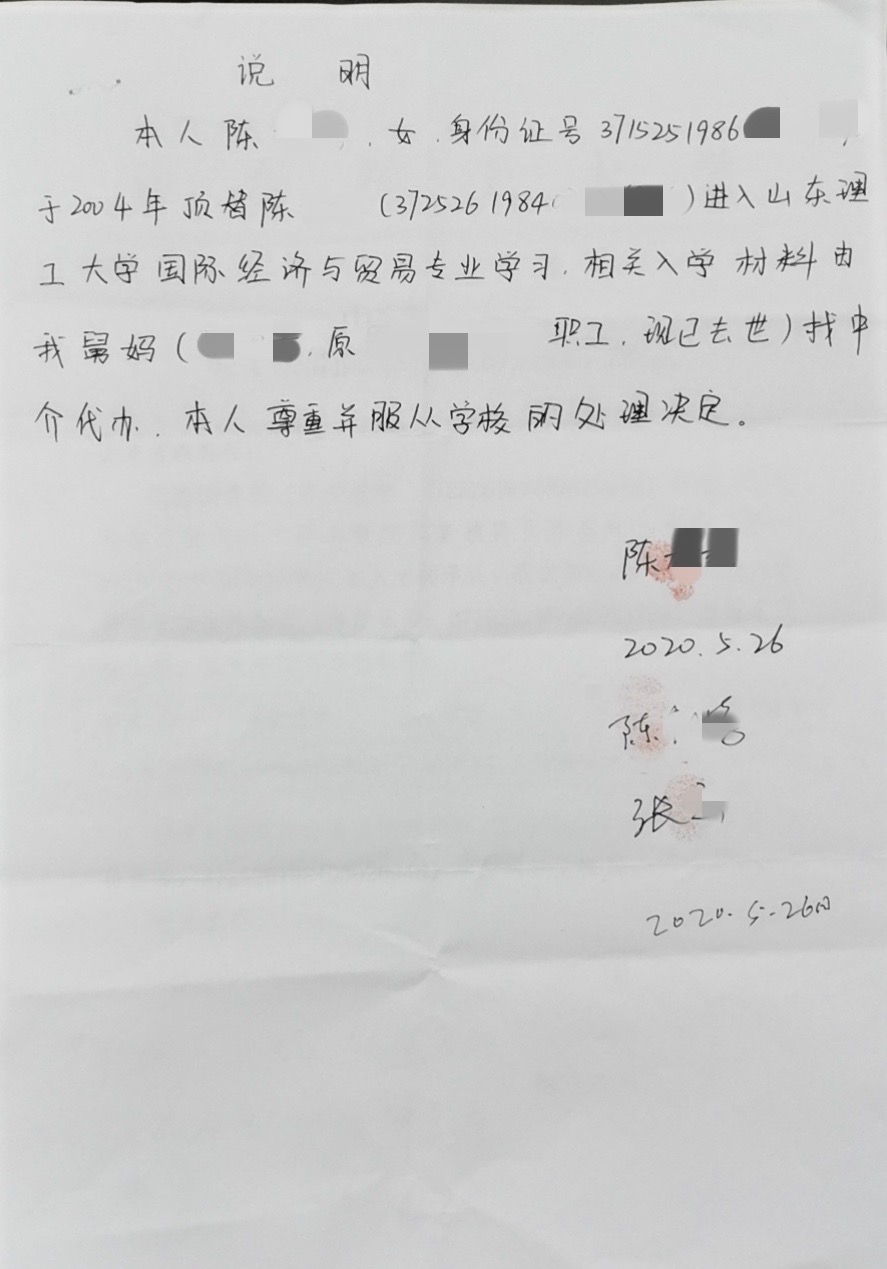 说 明
本人陈 ,女,身份证号3715251986 ,
于2004年顶替陈 (3725261984 )进入山东理
工大学国际经济与贸易专业学习,相关入学材料由
我舅妈( ,原 职工,现已去世)找中
介代办.本人尊重并服从学校的处理决定。
陈
2020.5.26
陈
张
2020.5.26日